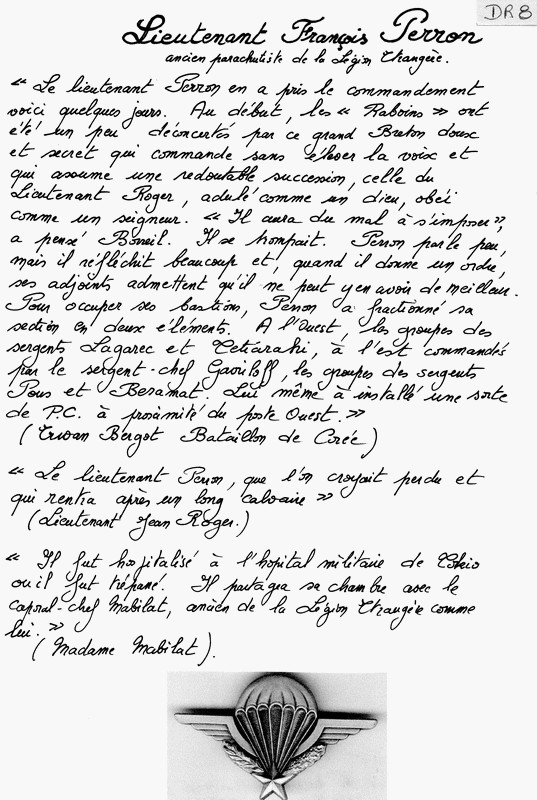 DR 8
Lieutenant François Perron
ancien parachutiste de la Légion Etrangère.
" Le lieutenant Perron en a pris le commandement
voici quelques jours. Au début, les « Raboins » ont
été un peu déconcertés par ce grand Breton doux
et secret qui commande sans élever la voix et
qui assume une redoutable succession, celle du
Lieutenant Roger, adulé comme un dieu, obéi
comme un seigneur. « Il aura du mal à s'imposer »,
a pensé Boneil. Il se trompait. Perron parle peu,
mais il réfléchit beaucoup et, quand il donne un ordre,
ses adjoints admettent qu'il ne peut y en avoir de meilleur.
Pour occuper ses bastions, Perron a fractionné sa
section en deux eléments. A l'Ouest, les groupes des
sergents Lagarec et Tetiarahi, à l'est commandés
par le sergent-chef Gavriloff, les groupes des sergents
Pous et Beramat. Lui même à installé une sorte
de P.C. à proximité du poste Ouest. »
(Erwan Bergot Bataillon de Corée)
« Le lieutenant Perron, que l'on croyait perdu et
qui rentra après un long calvaire »
(Lieutenant Jean Roger.)
« Il fut hospitalisé à l'hopital militaire de Tokio
ou il fut trépané. Il partagea sa chambre avec le
caporal-chef Mabilat, ancien de la Légion Etrangère comme
lui. »
(Madame Mabilat).